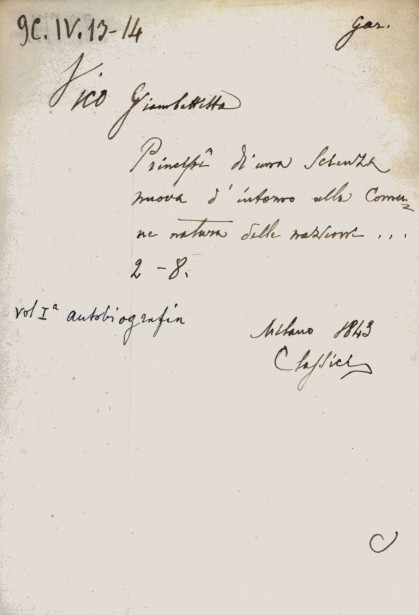 9C. IV. 13-14
gar.
Vico Giambattista
Principî di una Scienza
nuova d'intorno alla Comu-
ne natura delle nazioni ...
2 - 8.
vol Iª autobiografia
Milano 1843
Classici
C